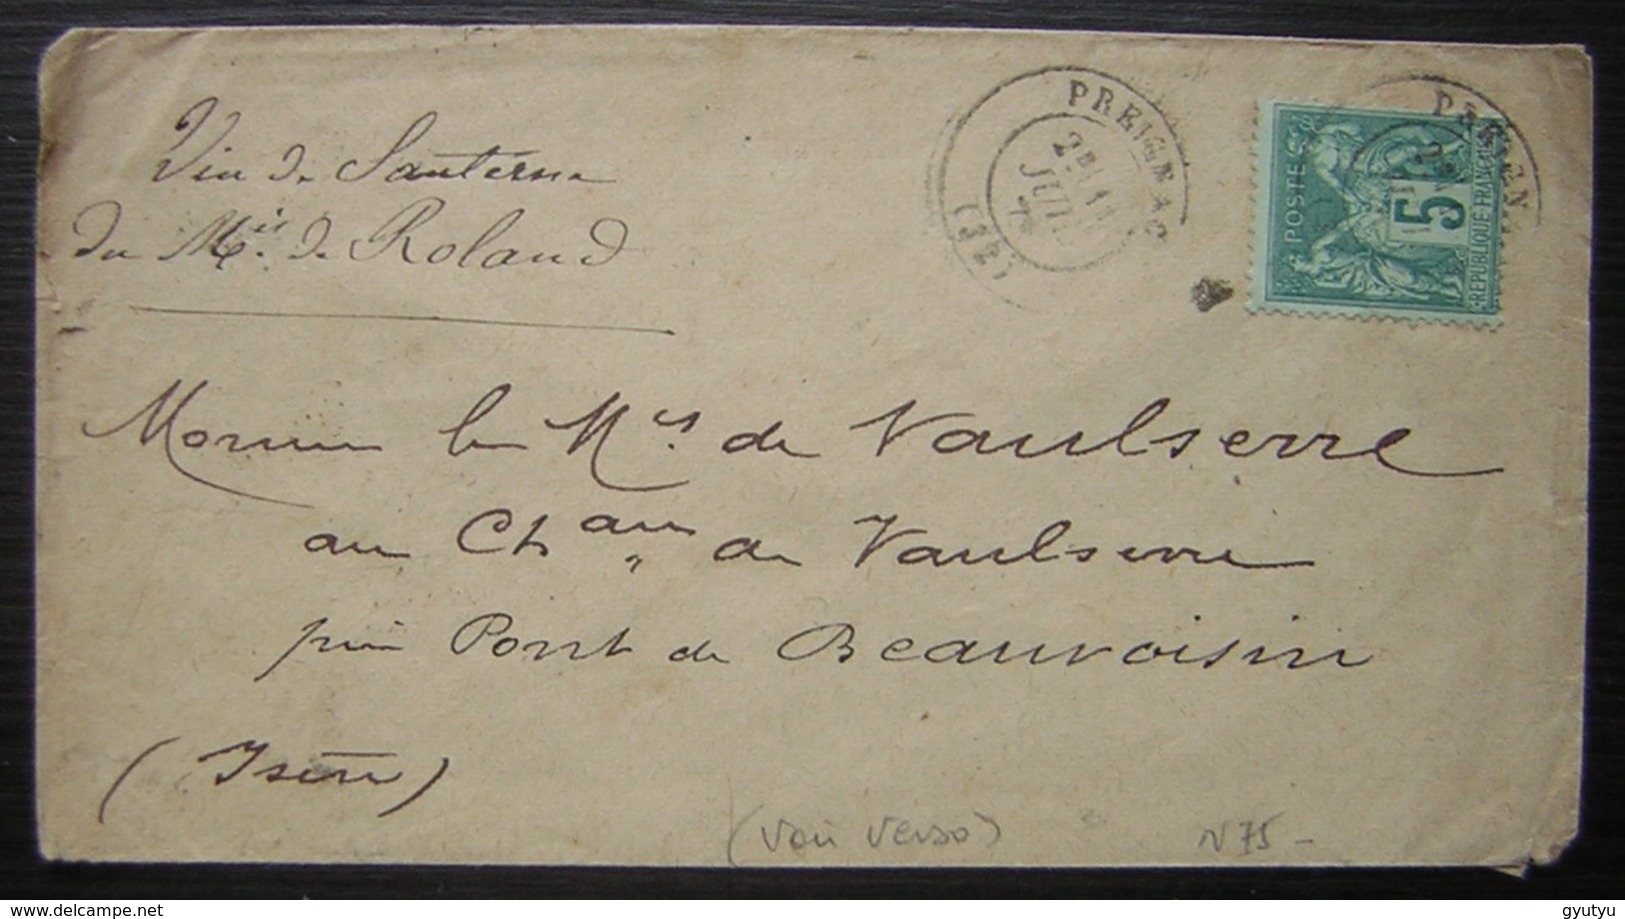 Vin de Sauterne
du Mis. de Roland
PREIGNAC
JUIL
(32)
PREIGN
POSTES
5
REPUBLIQUE FRANCAISE
Monsieur le Mis de Vaulserre
au Chau de Vaulserre
près Pont de Beauvoisin
(Isère)
(Voir Verso)
N75-
delcampe.net
gyutyu